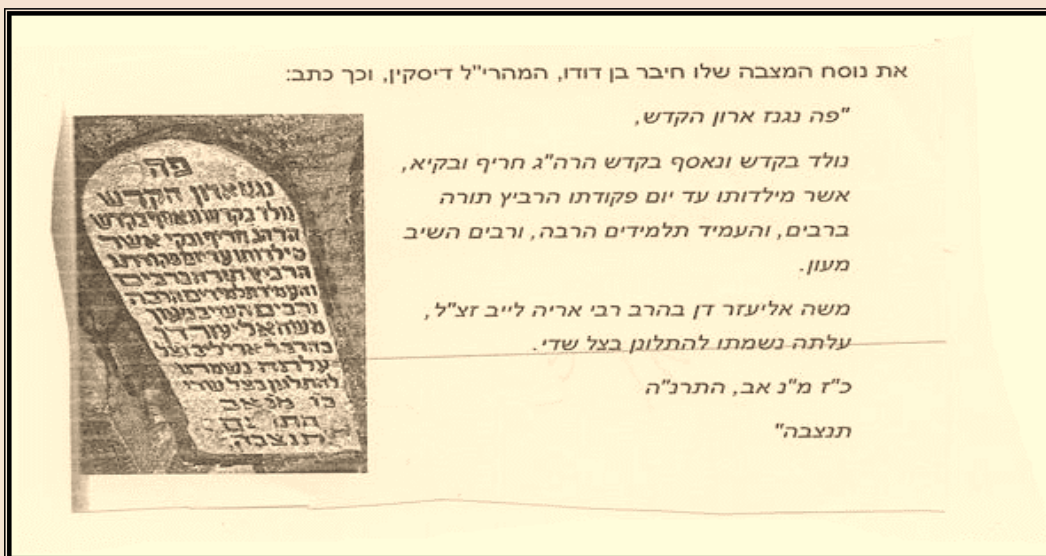 את נוסח המצבה שלו חיבר בן דודו, המהרי"ל דיסקין, וכך כתב:
"פה נגנז ארון הקדש,
נולד בקדש ונאסף בקדש הרה"ג חריף ובקיא,
אשר מילדותו עד יום פקודתו הרביץ תורה
ברבים, והעמיד תלמידים הרבה, ורבים השיב
מעון.
משה אליעזר דן בהרב רבי אריה לייב זצ"ל,
עלתה נשמתו להתלונן בצל שדי.
כ"ז מ"נ אב, התרנ"ה
תנצבה"
פה
ארון הקדש
נולד בקדש ונאסף בקדש
הרהג חריף ובקי אשר
מילדותו עד יום
הרביץ תורה ברבים
והעמיד תלמידים הרבה
ורבים השיב מעון
משה אליעזר דן
בהרב ר
עלתה נשמתו
להתלונן בצל שדי
מנ אב
תנצבה